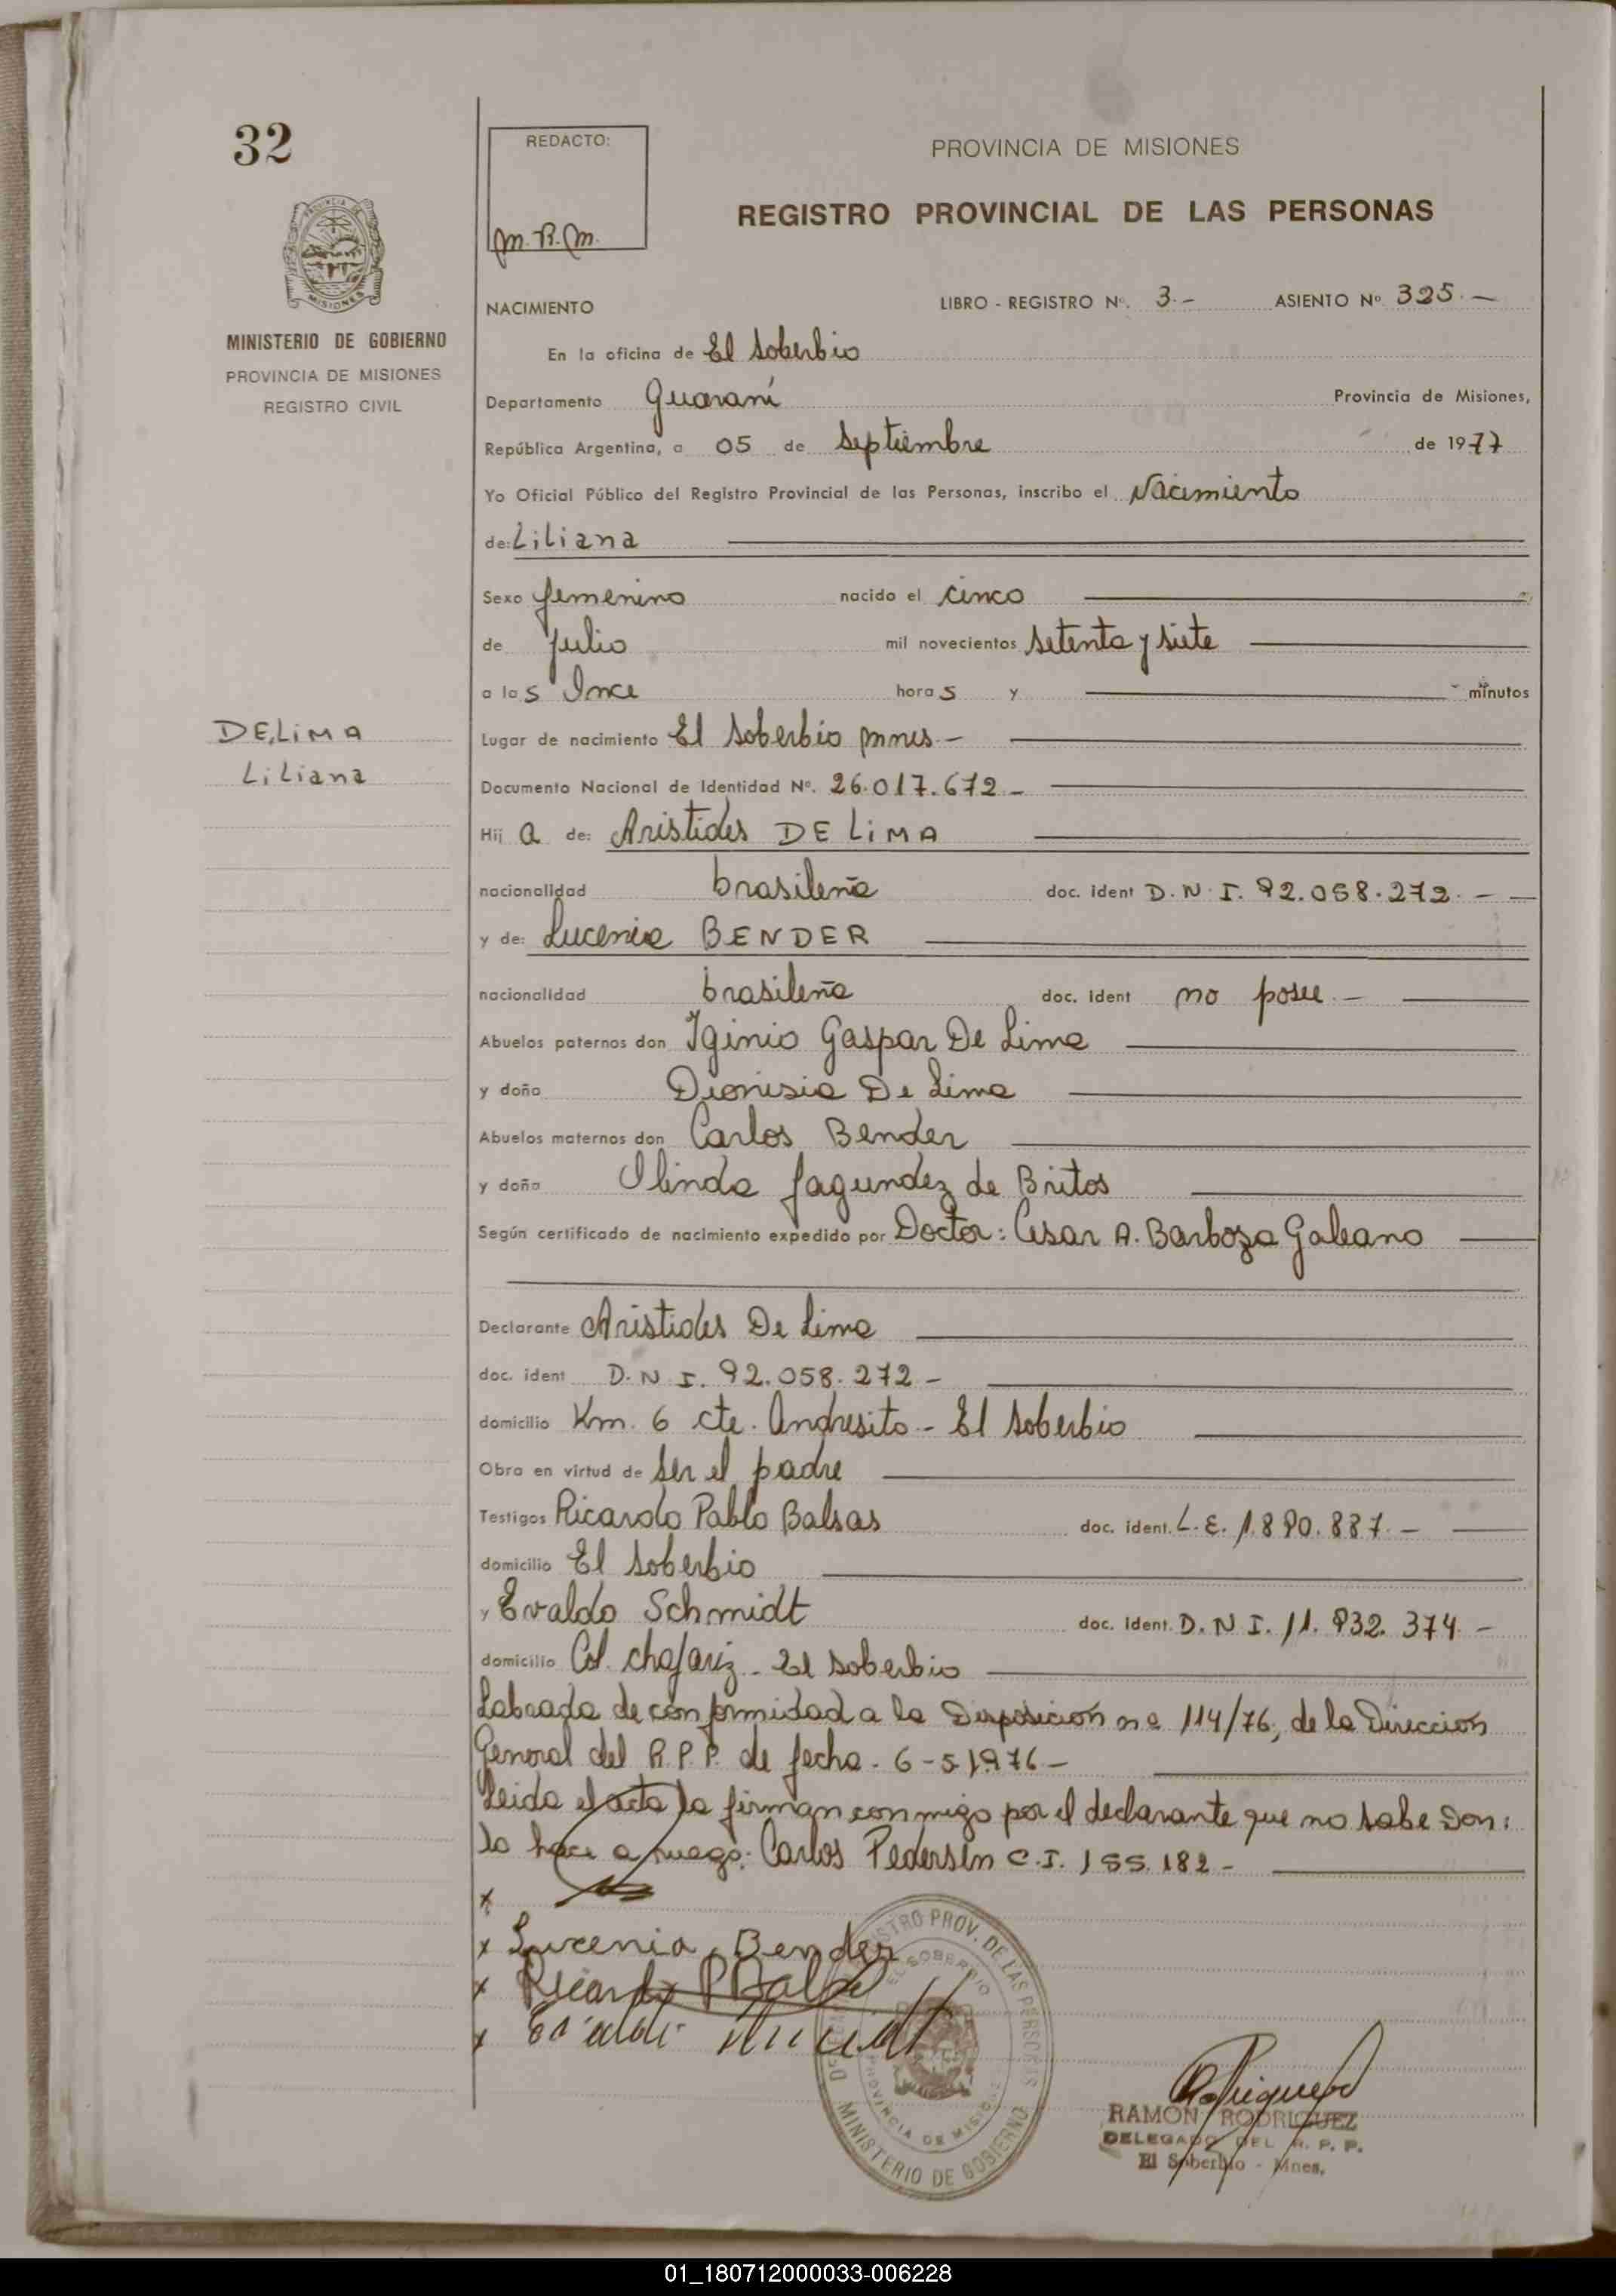 32
REDACTO:
m.R.m.
PROVINCIA DE MISIONES
REGISTRO PROVINCIAL DE LAS PERSONAS
PROVINCIA DE
MISIONES
MINISTERIO DE GOBIERNO
PROVINCIA DE MISIONES
REGISTRO CIVIL
NACIMIENTO LIBRO - REGISTRO Nº. 3.- ASIENTO Nº 325.-
En la oficina de El Soberbio
Departamento Guaraní Provincia de Misiones,
República Argentina, a 05 de Septiembre de 1977
Yo Oficial Público del Registro Provincial de las Personas, inscribo el Nacimiento
de: Liliana
Sexo femenino nacido el cinco
de julio mil novecientos setenta y siete
a las Once horas y minutos
DE LiMA
Liliana
Lugar de nacimiento El Soberbio Mnes.-
Documento Nacional de Identidad Nº. 26.017.672.-
Hija de: Aristides DE LiMA
nacionalidad brasileña doc. ident D.N.I. 92.058.272.-
y de: Lucenia BENDER
nacionalidad brasileña doc. ident no posee.-
Abuelos paternos don Iginio Gaspar De Lima
y doña Dionisia De Lima
Abuelos maternos don Carlos Bender
y doña Olinda Fagundez de Britos
Según certificado de nacimiento expedido por Doctor: Cesar A. Barboza Galeano
Declarante Aristides De Lima
doc. ident D.N.I. 92.058.272-
domicilio Km. 6 cte. Andresito - El Soberbio
Obra en virtud de ser el padre
Testigos Ricardo Pablo Balsas doc. ident. L.E. 1.890.887.-
domicilio El Soberbio
y Evaldo Schmidt doc. ident. D.N.I. 11.932.374.-
domicilio Col. chafariz - El Soberbio
Labrada de conformidad a la Disposicion nº 114/76, de la Direccion
General del R.P.P. de fecha - 6-5-1976-
Leida el acta la firman conmigo por el declarante que no sabe Don:
lo hace a ruego: Carlos Pedersen C.I. 155.182-
x
x Lucenia Bender
x Ricardo P Balsa
x
REGISTRO PROV. DE LAS PERSONAS
EL SOBERBIO
PROVINCIA DE MISIONES
MINISTERIO DE GOBIERNO
RAMON RODRIGUEZ
DELEGADO DEL R. P. P.
El Soberbio - Mnes.
01_180712000033-006228